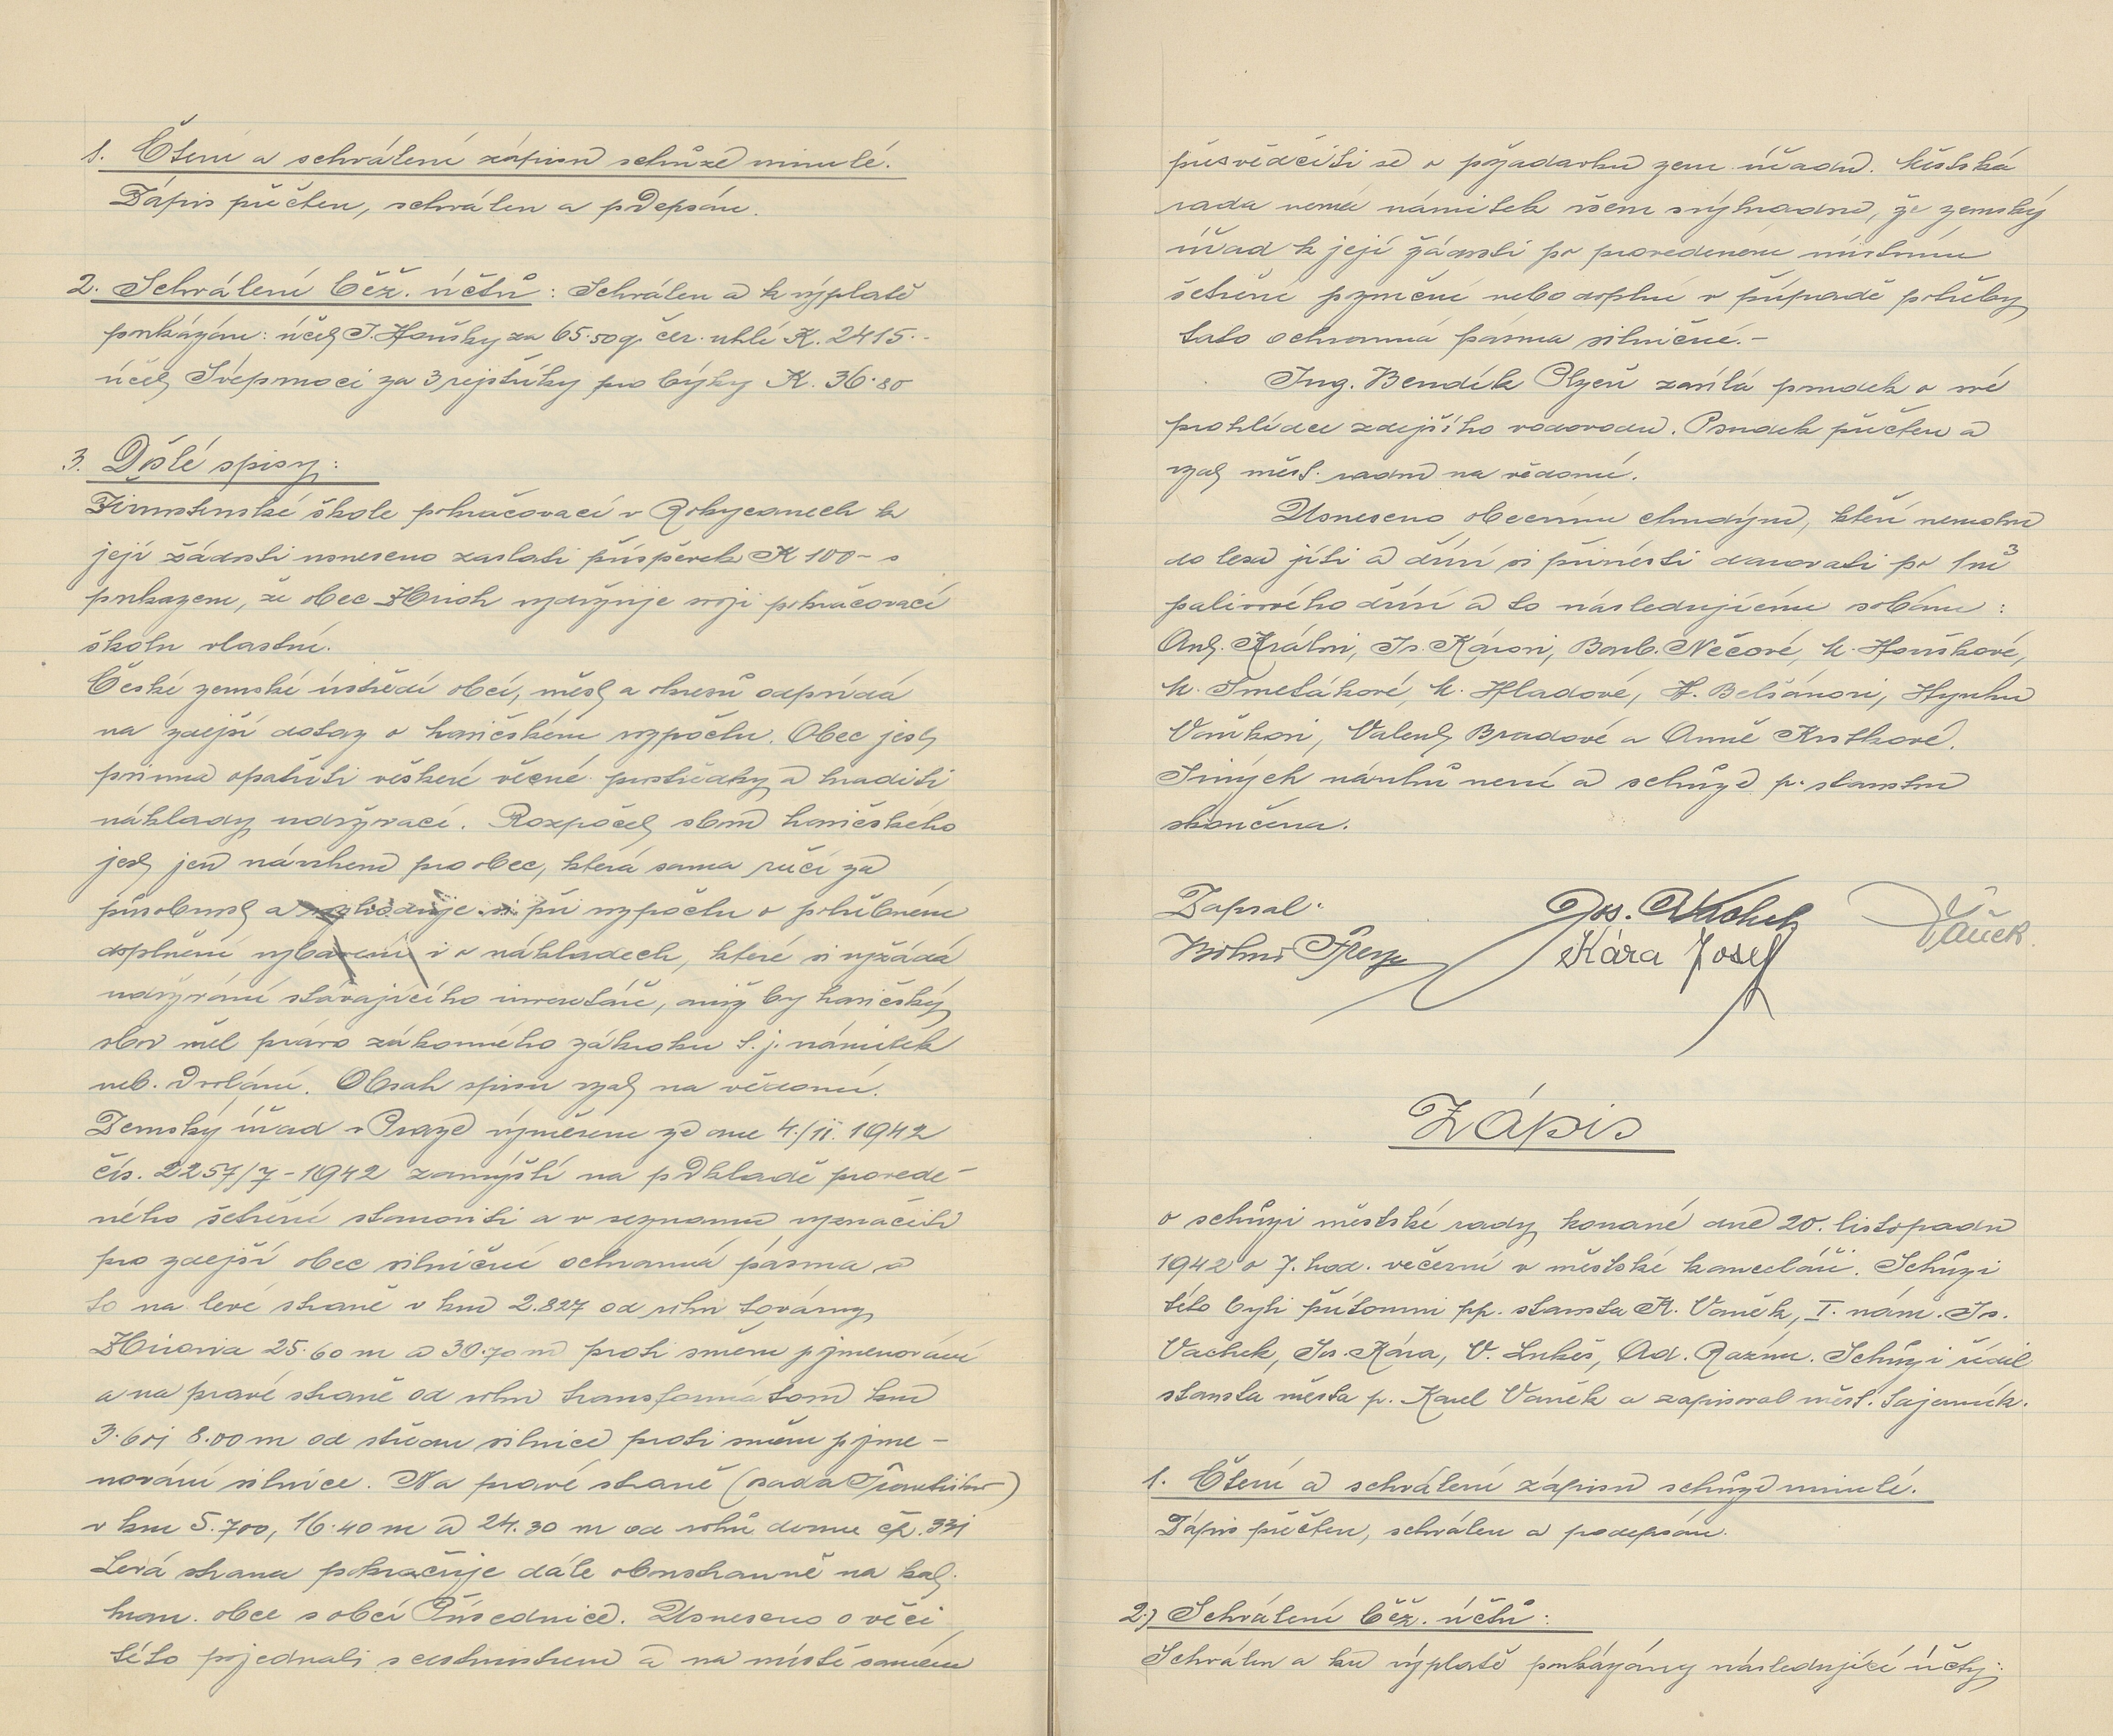 1. Čtení a schválení zápisu schůze minulé.
Zápis přečten, schválen a podepsán.
2. Schválení běž. účtů: Schválen a k výplatě
poukázán: účet J. Houšky za 65.50 q čer. uhlí K. 2415.-
účet Svépomoci za 3 rejstříky pro býky K. 36.80
3. Došlé spisy:
Živnostenské škole pokračovací v Rokycanech k
její žádosti usneseno zaslati příspěvek K 100- s
poukazem, že obec Hrich vydržuje svoji pokračovací
školu vlastní.
České zemské ústředí obcí, měst a okresů odpovídá
na zdejší dotaz o hasičském rozpočtu. Obec jest
povinna opatřiti veškeré věcné prostředky a hraditi
náklady udržovací. Rozpočet sboru hasičského
jest jen návrhem pro obec, která sama ručí za
působnost a rozhoduje si při rozpočtu o potřebném
doplnění vybavení i o nákladech, které si vyžádá
udržování stávajícího inventáře, aniž by hasičský
sbor měl právo zákonného zákroku t. j. námitek
neb. odvolání. Obsah spisu vzat na vědomí.
Zemský úřad v Praze výměrem ze dne 4./11. 1942
čís. 2257/7-1942 zamýšlí na podkladě provede-
ného šetření stanoviti a v seznamu vyznačiti
pro zdejší obec silniční ochranná pásma a
to na levé straně v km 2.827 od rohu továrny
25.60 m a 30.70 m proti směru pojmenování
a na pravé straně od rohu transformátoru km
3.601 8.00 m od středu silnice proti směru pojme-
nování silnice. Na pravé straně (osada
v km 5.700, 16.40 m a 24.30 m od rohů domu čp. 331
Levá strana pokračuje dále oboustranně na kat.
hran. obce s obcí Příkosice. Usneseno o věci
této pojednati s cestmistrem a na místě samém
přesvědčiti se o požadavku zem. úřadu. Městská
rada nemá námitek všem s výhradou, že zemský
úřad k její žádosti po provedeném místním
šetření pozmění nebo doplní v případě potřeby
tato ochranná pásma silniční.-
Ing. Bendík Plzeň zasílá posudek o své
prohlídce zdejšího vodovodu. Posudek přečten a
vzat měst. radou na vědomí.
Usneseno obecním chudým, kteří nemohou
do lesa jíti a dříví si přinésti darovati po 1 m³
palivového dříví a to následujícím osobám:
Ant. Královi, Js. Károvi, Barb. Nečové, M. Houškové,
M. Smetákové, M. Hladové, F. Belšánovi, Hynku
Vaňkovi, Valent. Bradové a Anně Krstkové.
Jiných návrhů není a schůze p. starostou
skončena.
Zapsal:
Jos. Vachek
Vaněk
Kára Josef
Zápis
o schůzi městské rady konané dne 20. listopadu
1942 o 7. hod. večerní v městské kanceláři. Schůzi
této byli přítomni pp. starosta K. Vaněk, I. nám. Js.
Vachek, Js. Kára, V. Lukeš, Ad. Razím. Schůzi řídil
starosta města p. Karel Vaněk a zapisoval měst. tajemník.
1. Čtení a schválení zápisu schůze minulé.
Zápis přečten, schválen a podepsán.
2.) Schválení běž. účtů:
Schválen a ku výplatě poukázány následující účty: